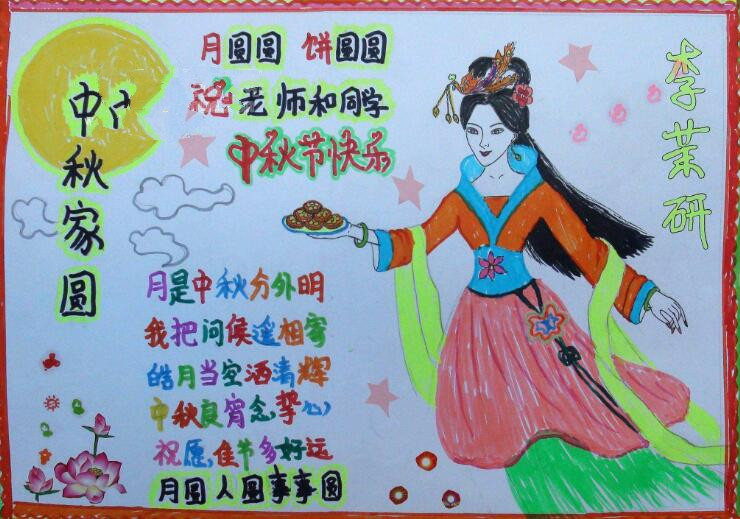 中秋家圆
月圆圆 饼圆圆
祝老师和同学
中秋节快乐
月是中秋分外明
我把问候遥相寄
皓月当空洒清辉
中秋良宵念,挚心
祝愿,佳节多好运
月圆人圆事事圆
李茉研